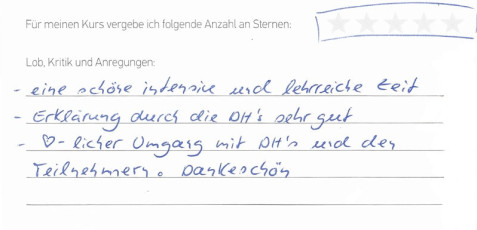 Für meinen Kurs vergebe ich folgende Anzahl an Sternen:
Lob, Kritik und Anregungen:
- eine schöne intensive und lehrreiche Zeit
- Erklärung durch die DH's sehr gut
- ♡-licher Umgang mit DH's und den
Teilnehmern. Dankeschön